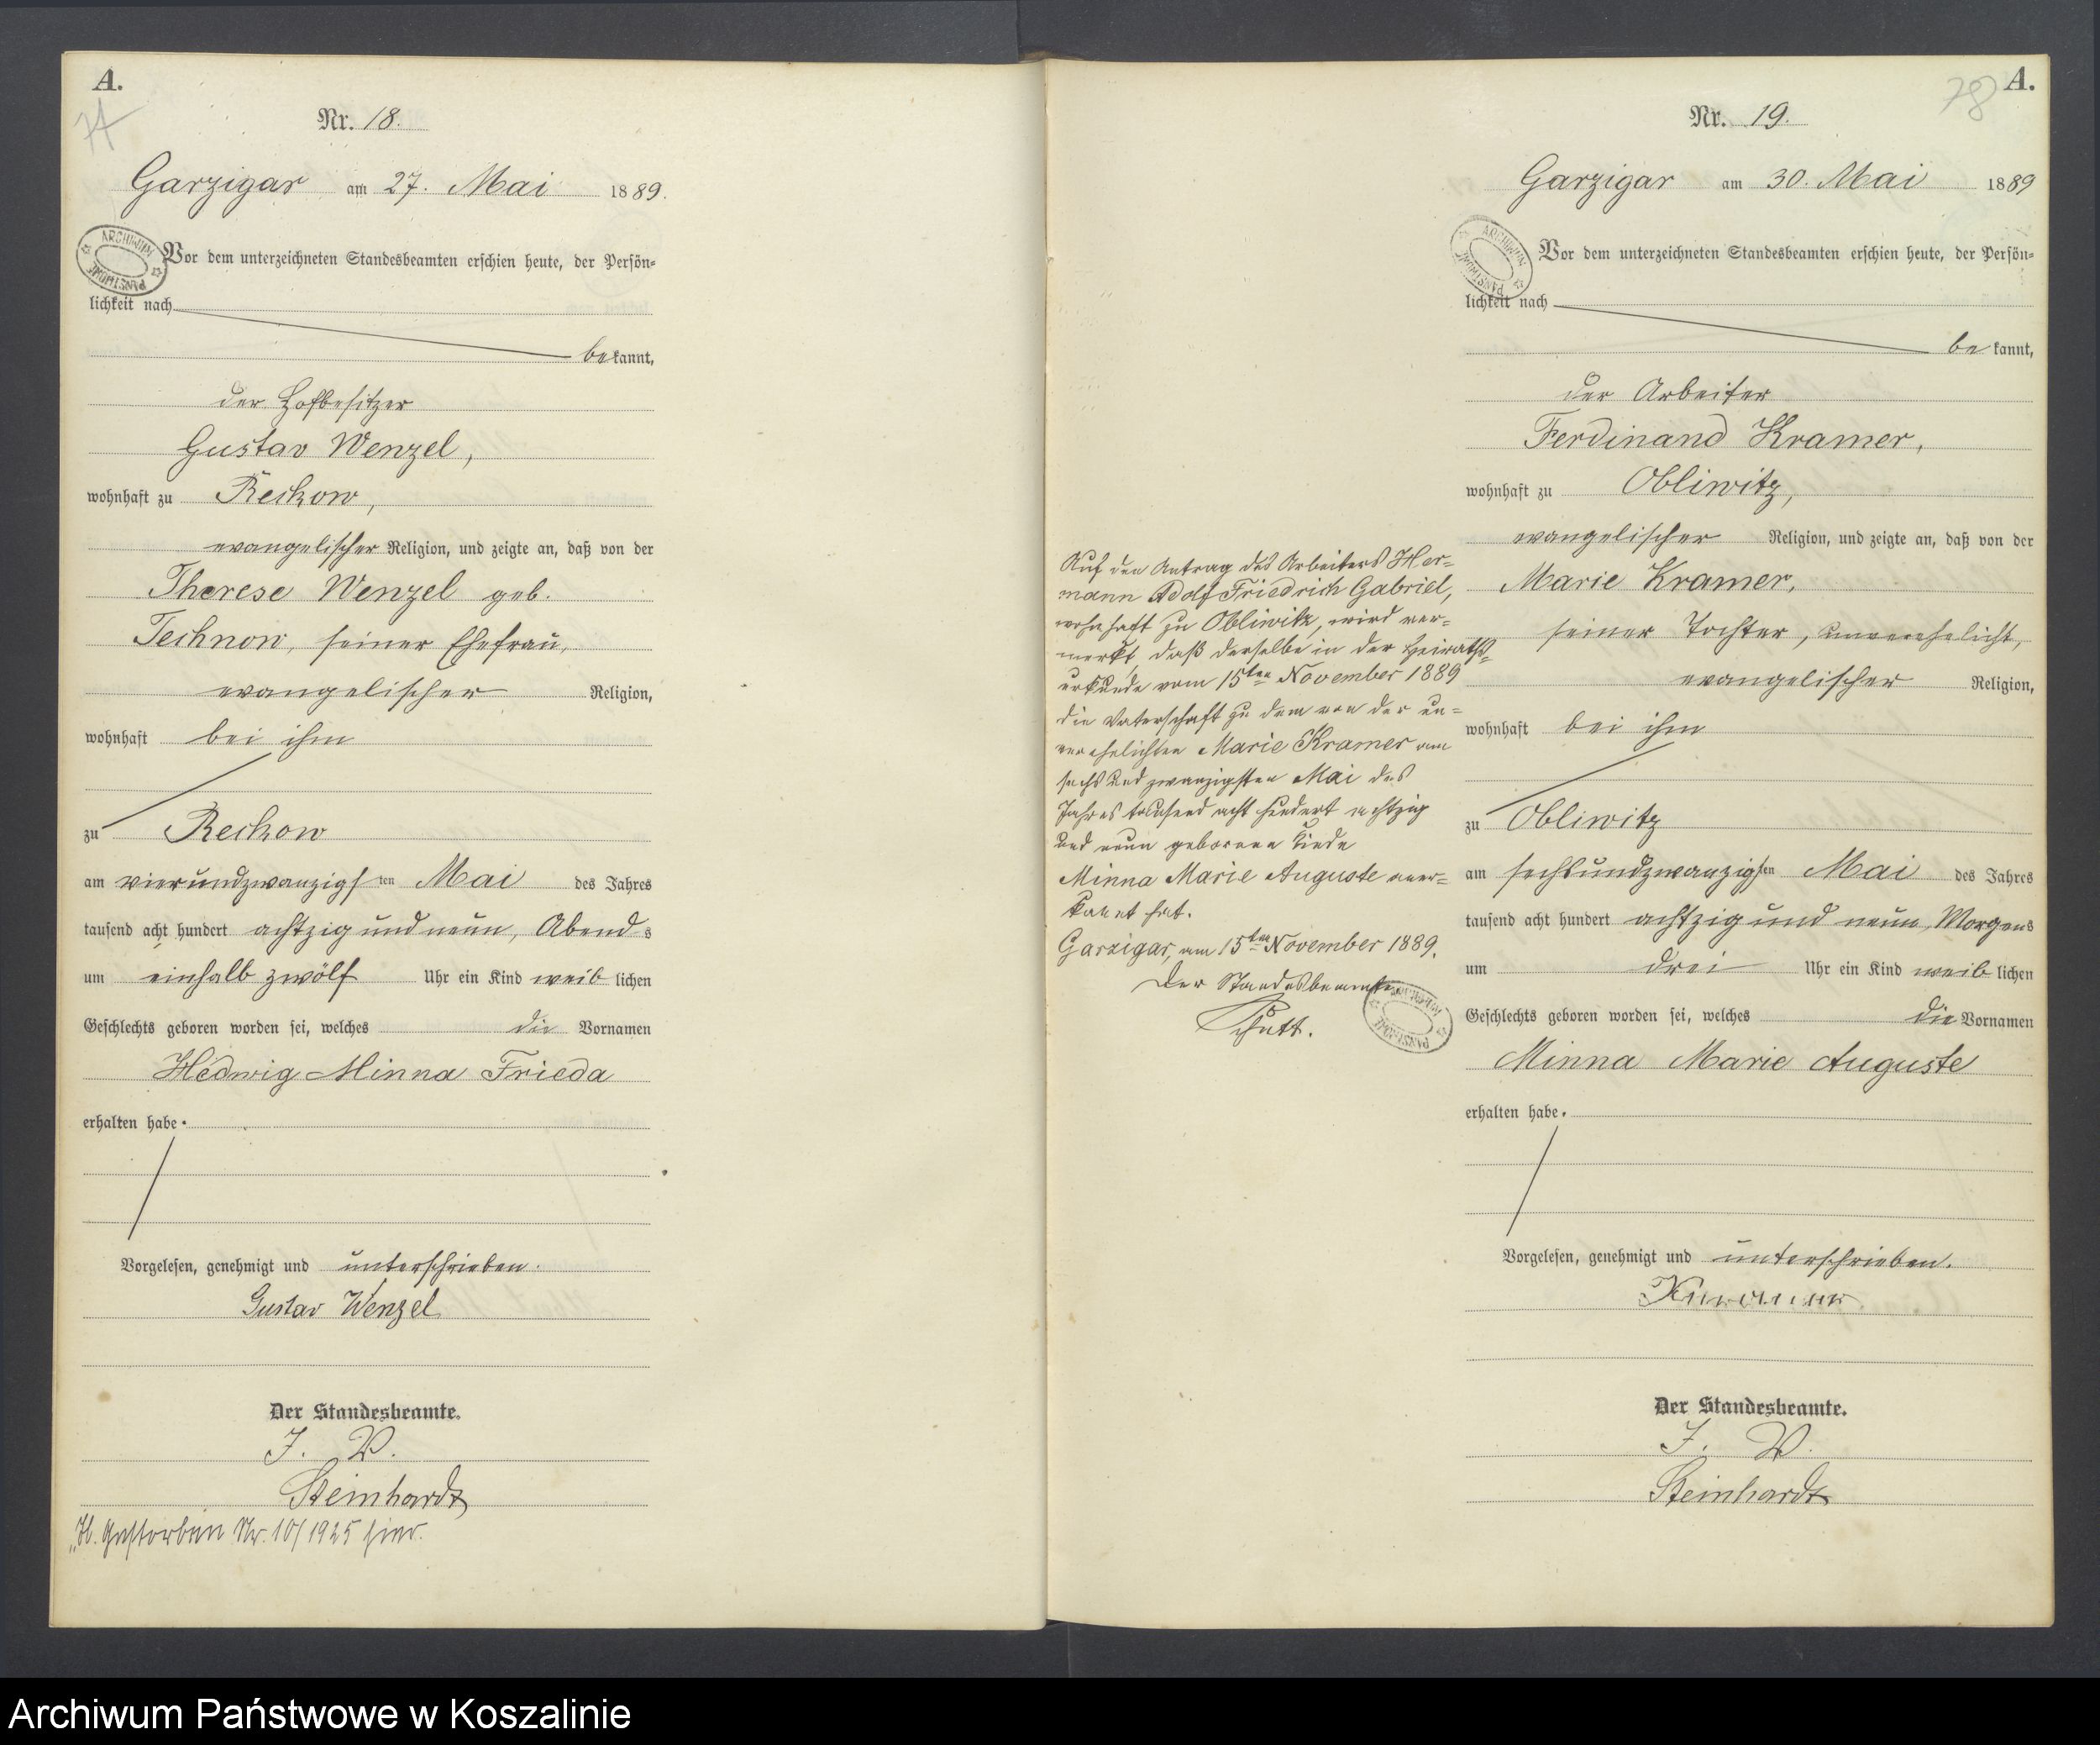 A.
Nr. 18.
Garzigar am 27. Mai 1889.
ARCHIWUM PAŃSTWOWE
Vor dem unterzeichneten Standesbeamten erschien heute, der Persön-
lichkeit nach
bekannt,
der Hofbesitzer
Gustav Wenzel,
wohnhaft zu Reckow,
evangelischer Religion, und zeigte an, daß von der
Therese Wenzel geb.
Technow, seiner Ehefrau,
evangelischer Religion,
wohnhaft bei ihm
zu Reckow
am vierundzwanzigsten Mai des Jahres
tausend acht hundert achtzig und neun, Abends
um einhalb zwölf Uhr ein Kind weiblichen
Geschlechts geboren worden sei, welches die Vornamen
Hedwig Minna Frieda
erhalten habe.
Vorgelesen, genehmigt und unterschrieben.
Gustav Wenzel
Der Standesbeamte.
J. V.
Steinhardt
Gestorben Nr. 10/1925 hier.
78 A.
Nr. 19.
Garzigar am 30. Mai 1889
ARCHIWUM PAŃSTWOWE
Vor dem unterzeichneten Standesbeamten erschien heute, der Persön-
lichkeit nach
bekannt,
der Arbeiter
Ferdinand Kramer,
wohnhaft zu Obliwitz,
evangelischer Religion, und zeigte an, daß von der
Marie Kramer,
seiner Tochter, unverehelicht,
evangelischer Religion,
wohnhaft bei ihm
zu Obliwitz
am sechsundzwanzigsten Mai des Jahres
tausend acht hundert achtzig und neun, Morgens
um drei Uhr ein Kind weiblichen
Geschlechts geboren worden sei, welches die Vornamen
Minna Marie Auguste
erhalten habe.
Vorgelesen, genehmigt und unterschrieben.
Kramer
Der Standesbeamte.
J. V.
Steinhardt
Auf den Antrag des Arbeiters Her-
mann Adolf Friedrich Gabriel,
wohnhaft zu Obliwitz, wird ver-
merkt, daß derselbe in der Heiraths-
urkunde vom 15ten November 1889
die Vaterschaft zu dem von der un-
verehelichten Marie Kramer am
sechs und zwanzigsten Mai des
Jahres tausend acht hundert achtzig
und neun geborenen Kinde
Minna Marie Auguste aner-
kannt hat.
Garzigar, am 15ten November 1889.
Der Standesbeamte
ARCHIWUM PAŃSTWOWE
Archiwum Państwowe w Koszalinie